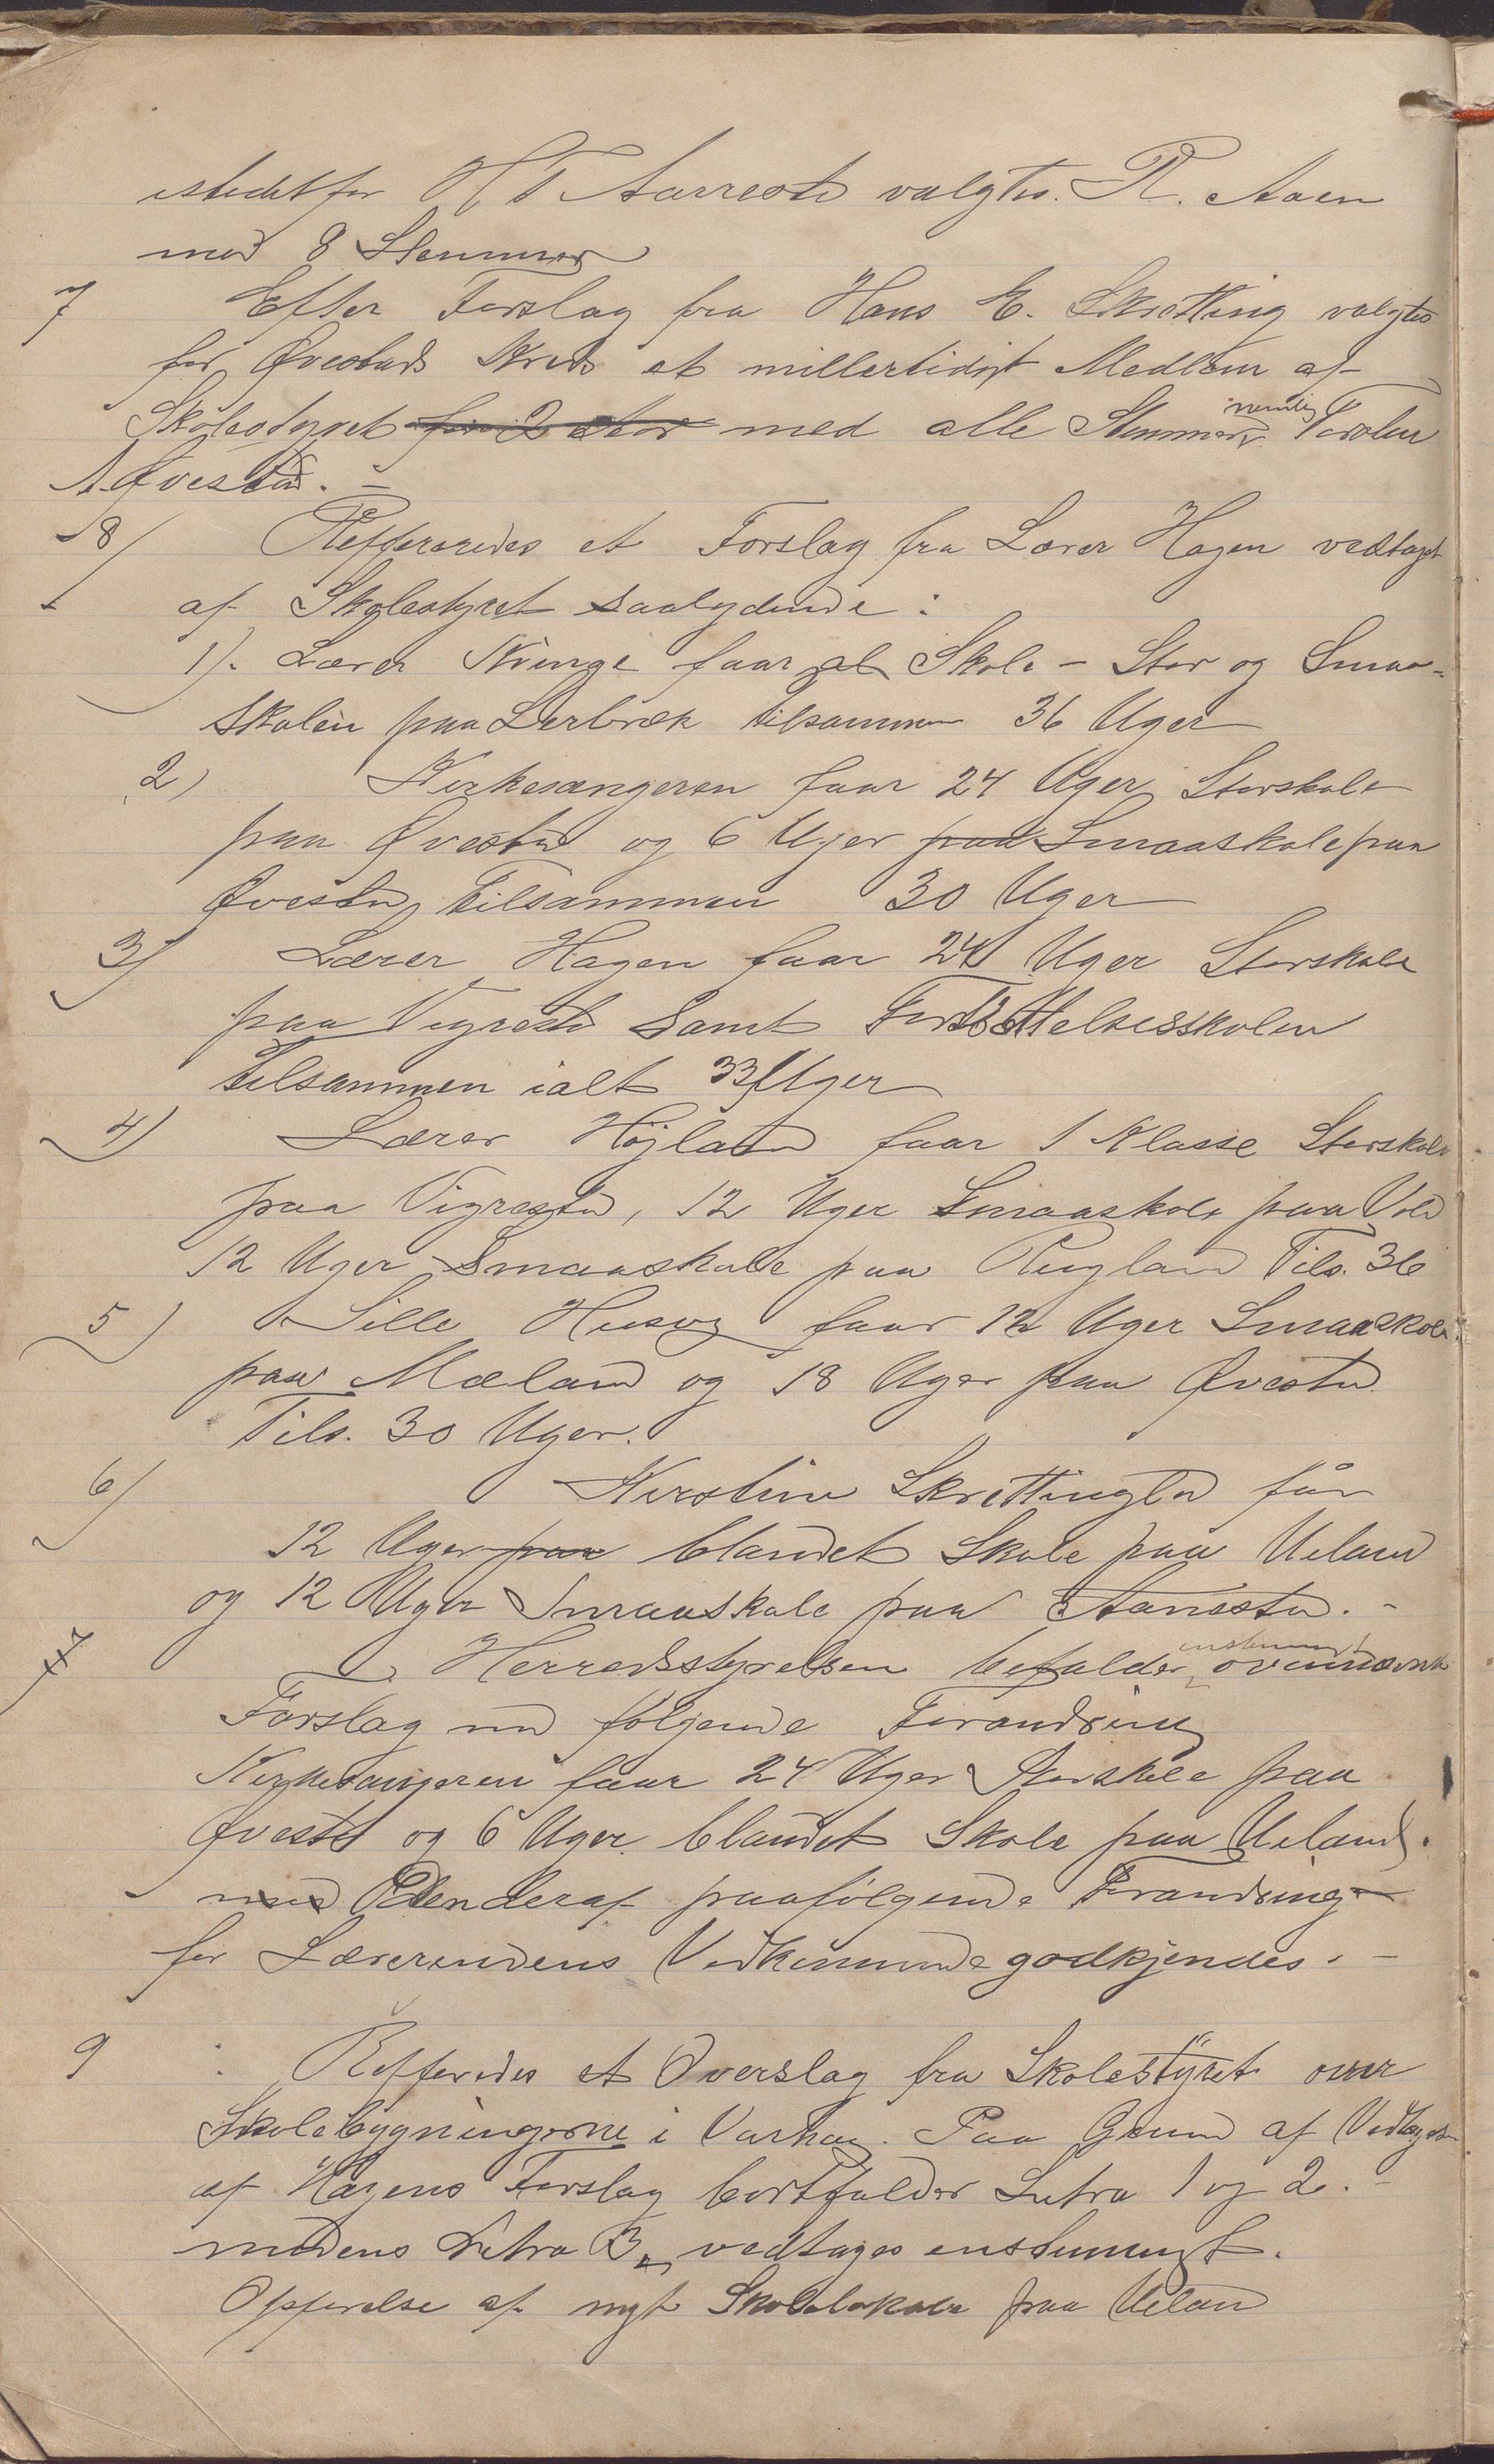 istedetfor H T Aarrestad valgtes. R. Aaen
med 8 Stemmer
7 Efter Forslag fra Hans E. Skretting valgtes
for Øvestads Kreds et millertidigt Medlem af
Skolestyret for 2 Aar med alle Stemmer nemlig Torsten
A. Øvestad. –
8/ Reffereredes et Forslag fra Lærer Hagen vedtaget
af Skolestyret saalydende:
1). Lærer Kringe faar al Skole – Stor og Smaa-
skolen paa Lerbræk tilsammen 36 Uger
2) Kirkesangeren faar 24 Uger Storskole
paa Øvestad og 6 Uger paa Smaaskole paa
Øvestad, tilsammen 30 Uger
3/ Lærer Hagen faar 24 Uger Storskole
paa Vigrestad samt Fortsættelsesskolen
tilsammen ialt 33 Uger
4/ Lærer Højland faar 1 Klasse Storskole
paa Vigrestad, 12 Uger Smaaskole paa Vold
12 Uger Smaaskole paa Rugland Tils. 36
5) Sille Husvg faar 12 Uger Smaaskole
paa Mæland og 18 Uger paa Øvestad
Tils. 30 Uger.
6/ Kirstine Skrettingland får
12 Uger paa blandet Skole paa Ueland
og 12 Uger Smaaskole paa Aanestad. –
Herredsstyrelsen bifalder enstemmigt ovennævnte
Forslag med følgende Forandring
Kirkesangeren faar 24 Uger Storskole paa
Øvestd og 6 Uger blandet Skole paa Ueland.
med Den deraf paafølgende Forandring
for Lærerindens Vedkommende godkjendes. –
9 Refferedes et Overslag fra Skolestyret over
Skolebygningerne i Varhaug. Paa Grund af Vedtagelse
af Hagens Forslag bortfalder Litra 1 og 2. –
medens Litra 3, vedtages enstemmigt.
Opførelse af nyt Skolelokale paa Ueland